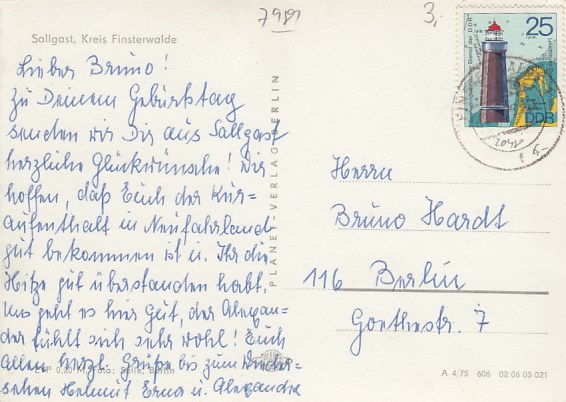 7989
3,
Sallgast, Kreis Finsterwalde
Lieber Bruno!
Zu Deinem Geburtstag
senden wir Dir aus Sallgast
herzliche Glückwünsche! Wir
hoffen, daß Euch der Kur=
aufenthalt in Neufahrland
gut bekommen ist u. Ihr die
Hitze gut überstanden habt.
Uns geht es hier Gut, der Alexan=
der fühlt sich sehr wohl! Euch
Allen herzl. Grüße bis zum Wieder=
sehen Helmut Erna u. Alexandra
PLANET-VERLAG BERLIN
25
DDR
Herrn
Bruno Hardt
116 Berlin
Goethestr. 7
Foto: Berlin
A 4/75 606 02 06 05 021